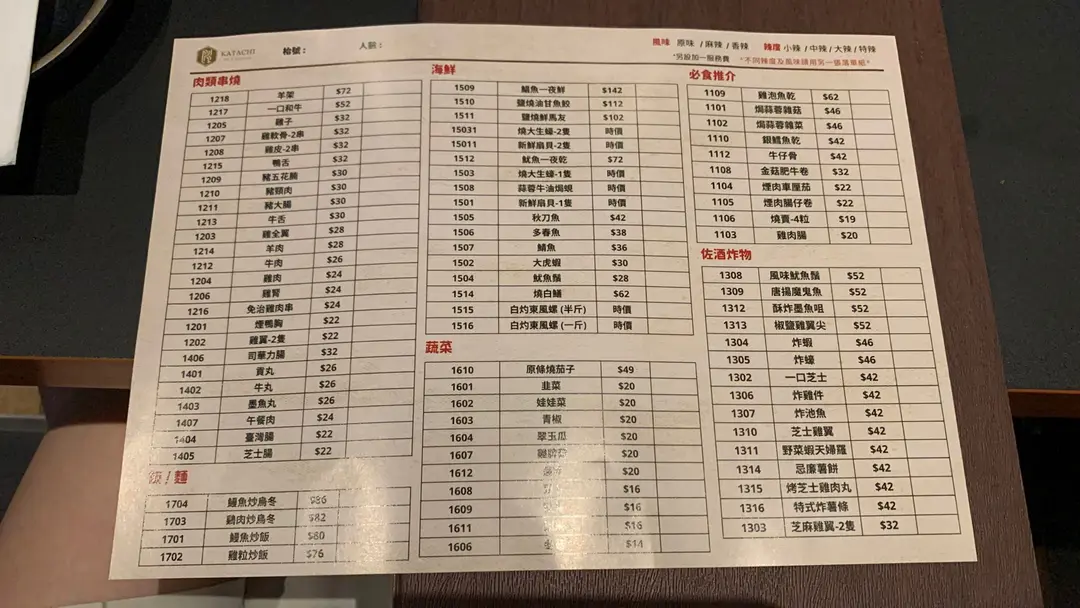 KATACHI
枱號：
人數：
風味 原味 / 麻辣 / 香辣 辣度 小辣 / 中辣 / 大辣 / 特辣
*另設加一服務費 *不同辣度及風味請用另一張菜單紙*
肉類串燒
1218 羊架 $72
1217 一口和牛 $52
1205 雞子 $32
1207 雞軟骨-2串 $32
1208 雞皮-2串 $32
1215 鴨舌 $32
1209 豬五花腩 $30
1210 豬頸肉 $30
1211 豬大腸 $30
1213 牛舌 $30
1203 雞全翼 $28
1214 羊肉 $28
1212 牛肉 $26
1204 雞肉 $24
1206 雞腎 $24
1216 免治雞肉串 $24
1201 煙鴨胸 $22
1202 雞翼-2隻 $22
1406 司華力腸 $32
1401 貢丸 $26
1402 牛丸 $26
1403 墨魚丸 $26
1407 午餐肉 $24
1404 臺灣腸 $22
1405 芝士腸 $22
飯 / 麵
1704 鰻魚炒烏冬 $86
1703 雞肉炒烏冬 $82
1701 鰻魚炒飯 $80
1702 雞粒炒飯 $76
海鮮
1509 鯖魚一夜鮮 $142
1510 鹽燒油甘魚鮫 $112
1511 鹽燒鮮馬友 $102
15031 燒大生蠔-2隻 時價
15011 新鮮扇貝-2隻 時價
1512 魷魚一夜乾 $72
1503 燒大生蠔-1隻 時價
1508 蒜蓉牛油焗蜆 時價
1501 新鮮扇貝-1隻 時價
1505 秋刀魚 $42
1506 多春魚 $38
1507 鯖魚 $36
1502 大虎蝦 $30
1504 魷魚鬚 $28
1514 燒白鱔 $62
1515 白灼東風螺 (半斤) 時價
1516 白灼東風螺 (一斤) 時價
蔬菜
1610 原條燒茄子 $49
1601 韭菜 $20
1602 娃娃菜 $20
1603 青椒 $20
1604 翠玉瓜 $20
1607 $20
1612 $20
1608 $16
1609 $16
1611 $16
1606 $14
必食推介
1109 雞泡魚乾 $62
1101 焗蒜蓉雜菇 $46
1102 焗蒜蓉雜菜 $46
1110 銀鱈魚乾 $42
1112 牛仔骨 $42
1108 金菇肥牛卷 $32
1104 煙肉車厘茄 $22
1105 煙肉腸仔卷 $22
1106 燒賣-4粒 $19
1103 雞肉腸 $20
佐酒炸物
1308 風味魷魚鬚 $52
1309 唐揚魔鬼魚 $52
1312 酥炸墨魚咀 $52
1313 椒鹽雞翼尖 $52
1304 炸蝦 $46
1305 炸蠔 $46
1302 一口芝士 $42
1306 炸雞件 $42
1307 炸池魚 $42
1310 芝士雞翼 $42
1311 野菜蝦天婦羅 $42
1314 忌廉薯餅 $42
1315 烤芝士雞肉丸 $42
1316 特式炸薯條 $42
1303 芝麻雞翼-2隻 $32